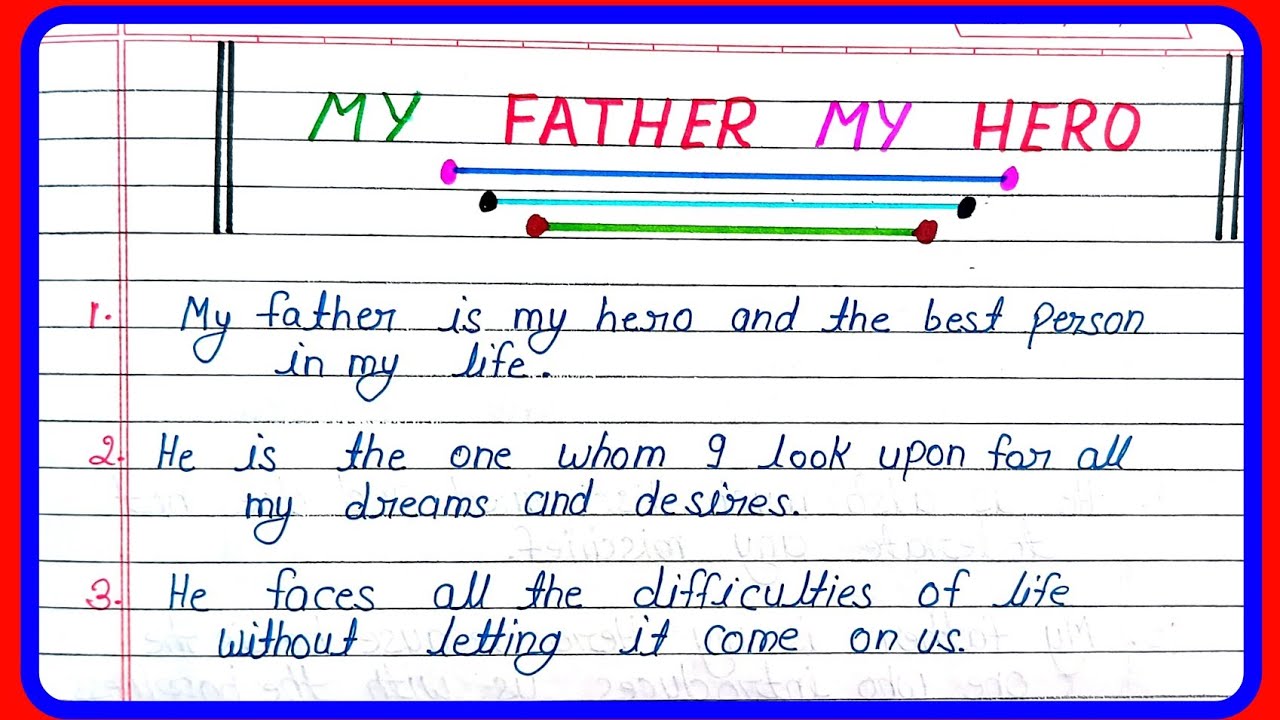 MY FATHER MY HERO
1. My father is my hero and the best person
in my life.
2. He is the one whom I look upon for all
my dreams and desires.
3. He faces all the difficulties of life
without letting it come on us.